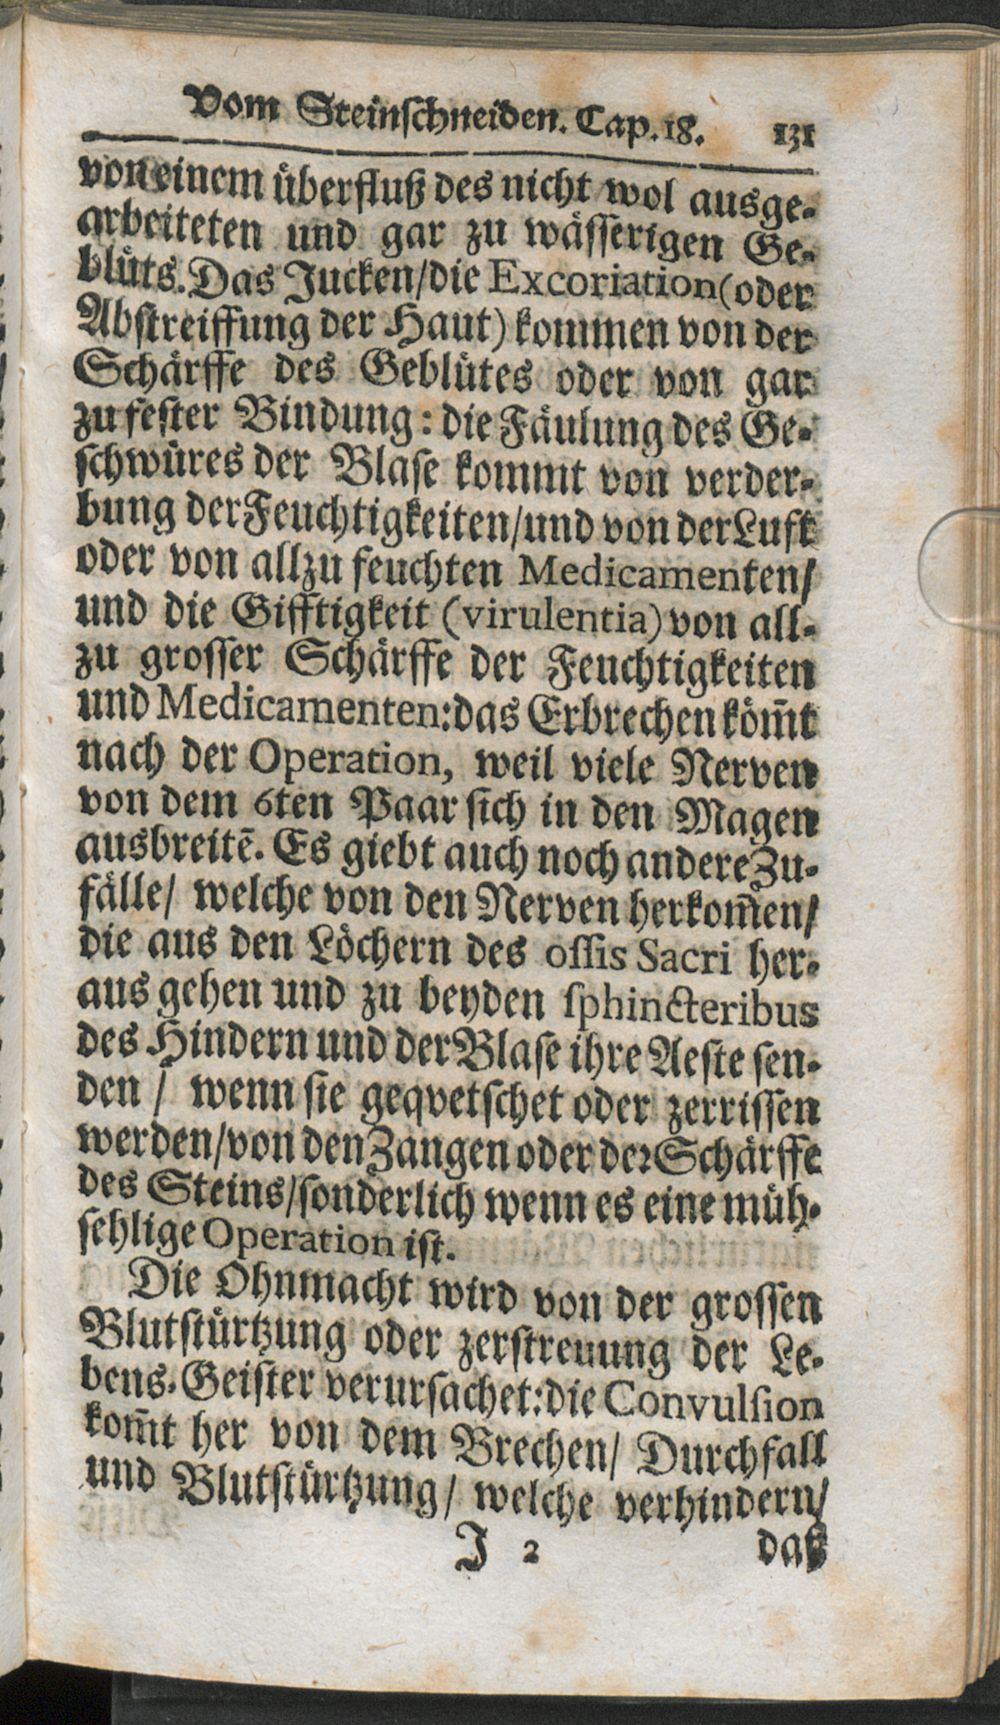 Vom Steinschneiden. Cap. 18. 131
von einem überfluß des nicht wol ausge-
arbeiteten und gar zu wässerigen Ge-
blüts. Das Jucken/die Excoriation (oder
Abstreiffung der Haut) kommen von der
Schärffe des Geblütes oder von gar
zu fester Bindung: die Fäulung des Ge-
schwüres der Blase kommt von verder-
bung der Feuchtigkeiten/und von der Luft
oder von allzu feuchten Medicamenten/
und die Gifftigkeit (virulentia) von all-
zu grosser Schärffe der Feuchtigkeiten
und Medicamenten: das Erbrechen köm̃t
nach der Operation, weil viele Nerven
von dem 6ten Paar sich in den Magen
ausbreitẽ. Es giebt auch noch andere Zu-
fälle/ welche von den Nerven herkom̃en/
die aus den Löchern des ossis Sacri her-
aus gehen und zu beyden sphincteribus
des Hindern und der Blase ihre Aeste sen-
den / wenn sie geqvetschet oder zerrissen
werden/von den Zangen oder der Schärffe
des Steins/sonderlich wenn es eine müh-
sehlige Operation ist.
Die Ohnmacht wird von der grossen
Blutstürtzung oder zerstreuung der Le-
bens-Geister verursachet: die Convulsion
kom̃t her von dem Brechen/ Durchfall
und Blutstürtzung/ welche verhindern/
J 2 daß